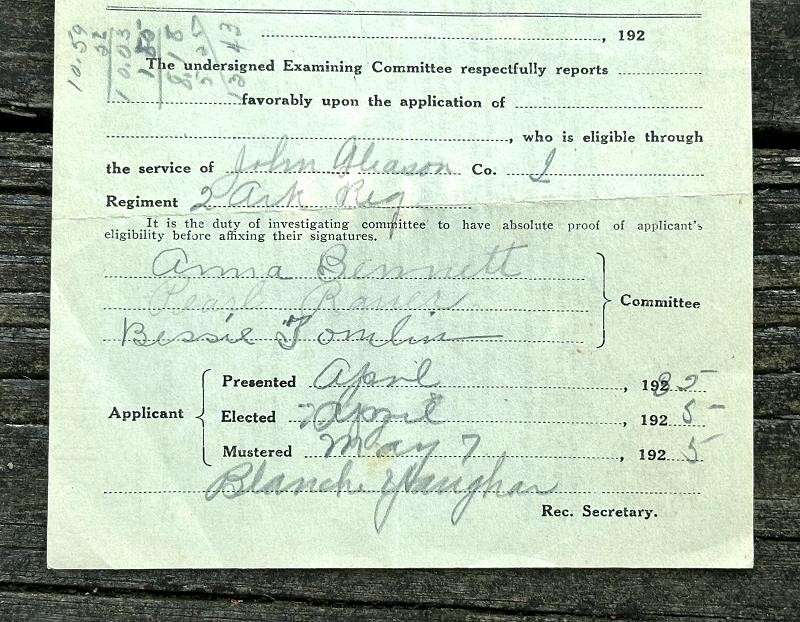 10.59
22
10.03
185
8.18
5.25
13.43
, 192
The undersigned Examining Committee respectfully reports
favorably upon the application of
, who is eligible through
the service of John Gleason Co. I
Regiment 2 Ark Reg
It is the duty of investigating committee to have absolute proof of applicant's
eligibility before affixing their signatures.
Anna Bennett
Pearl Rauer
Bessie Tomlin
Committee
Applicant
Presented April, 1925
Elected April, 1925
Mustered May 7, 1925
Blanche Vaughan
Rec. Secretary.